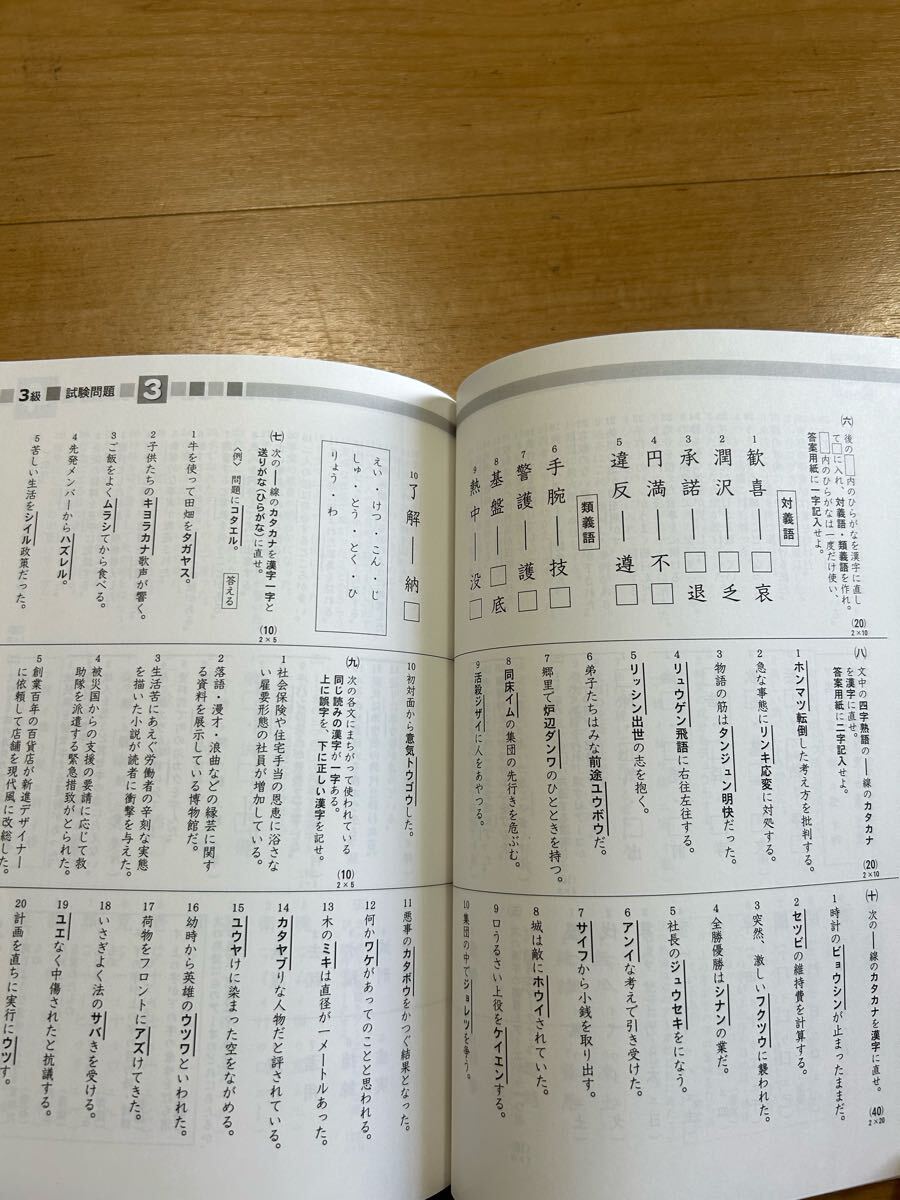 (六) 後の□内のひらがなを漢字に直し
て□に入れ、対義語・類義語を作れ。
□内のひらがなは一度だけ使い、
答案用紙に一字記入せよ。
(20)
2×10
対義語
1 歓喜―□哀
2 潤沢―□乏
3 承諾―□退
4 円満―不□
5 違反―遵□
類義語
6 手腕―技□
7 警護―護□
8 基盤―□底
9 熱中―没□
10 了解―納□
えい・けつ・こん・じ
しゅ・とう・とく・ひ
りょう・わ
3級 試験問題 3
(七) 次の―線のカタカナを漢字一字と
送りがな(ひらがな)に直せ。
〈例〉 問題にコタエル。 答える
(10)
2×5
1 牛を使って田畑をタガヤス。
2 子供たちのキヨラカナ歌声が響く。
3 ご飯をよくムラシてから食べる。
4 先発メンバーからハズレル。
5 苦しい生活をシイル政策だった。
(八) 文中の四字熟語の―線のカタカナ
を漢字に直せ。
答案用紙に二字記入せよ。
(20)
2×10
1 ホンマツ転倒した考え方を批判する。
2 急な事態にリンキ応変に対処する。
3 物語の筋はタンジュン明快だった。
4 リュウゲン飛語に右往左往する。
5 リッシン出世の志を抱く。
6 弟子たちはみな前途ユウボウだ。
7 郷里で炉辺ダンワのひとときを持つ。
8 同床イムの集団の先行きを危ぶむ。
9 活殺ジザイに人をあやつる。
10 初対面から意気トウゴウした。
(九) 次の各文にまちがって使われている
同じ読みの漢字が一字ある。
上に誤字を、下に正しい漢字を記せ。
(10)
2×5
1 社会保険や住宅手当の恩恵に浴さな
い雇用形態の社員が増加している。
2 落語・漫才・浪曲などの縁芸に関す
る資料を展示している博物館だ。
3 生活苦にあえぐ労働者の辛刻な実態
を描いた小説が読者に衝撃を与えた。
4 被災国からの支援の要請に応じて救
助隊を派遣する緊急措致がとられた。
5 創業百年の百貨店が新進デザイナー
に依頼して店舗を現代風に改総した。
(十) 次の―線のカタカナを漢字に直せ。
(40)
2×20
1 時計のビョウシンが止まったままだ。
2 セツビの維持費を計算する。
3 突然、激しいフクツウに襲われた。
4 全勝優勝はシナンの業だ。
5 社長のジュウセキをになう。
6 アンイな考えで引き受けた。
7 サイフから小銭を取り出す。
8 城は敵にホウイされていた。
9 口うるさい上役をケイエンする。
10 集団の中でジョレツを争う。
11 悪事のカタボウをかつぐ結果となった。
12 何かワケがあってのことと思われる。
13 木のミキは直径が一メートルあった。
14 カタヤブりな人物だと評されている。
15 ユウヤけに染まった空をながめる。
16 幼時から英雄のウツワといわれた。
17 荷物をフロントにアズけてきた。
18 いさぎよく法のサバきを受ける。
19 ユエなく中傷されたと抗議する。
20 計画を直ちに実行にウツす。